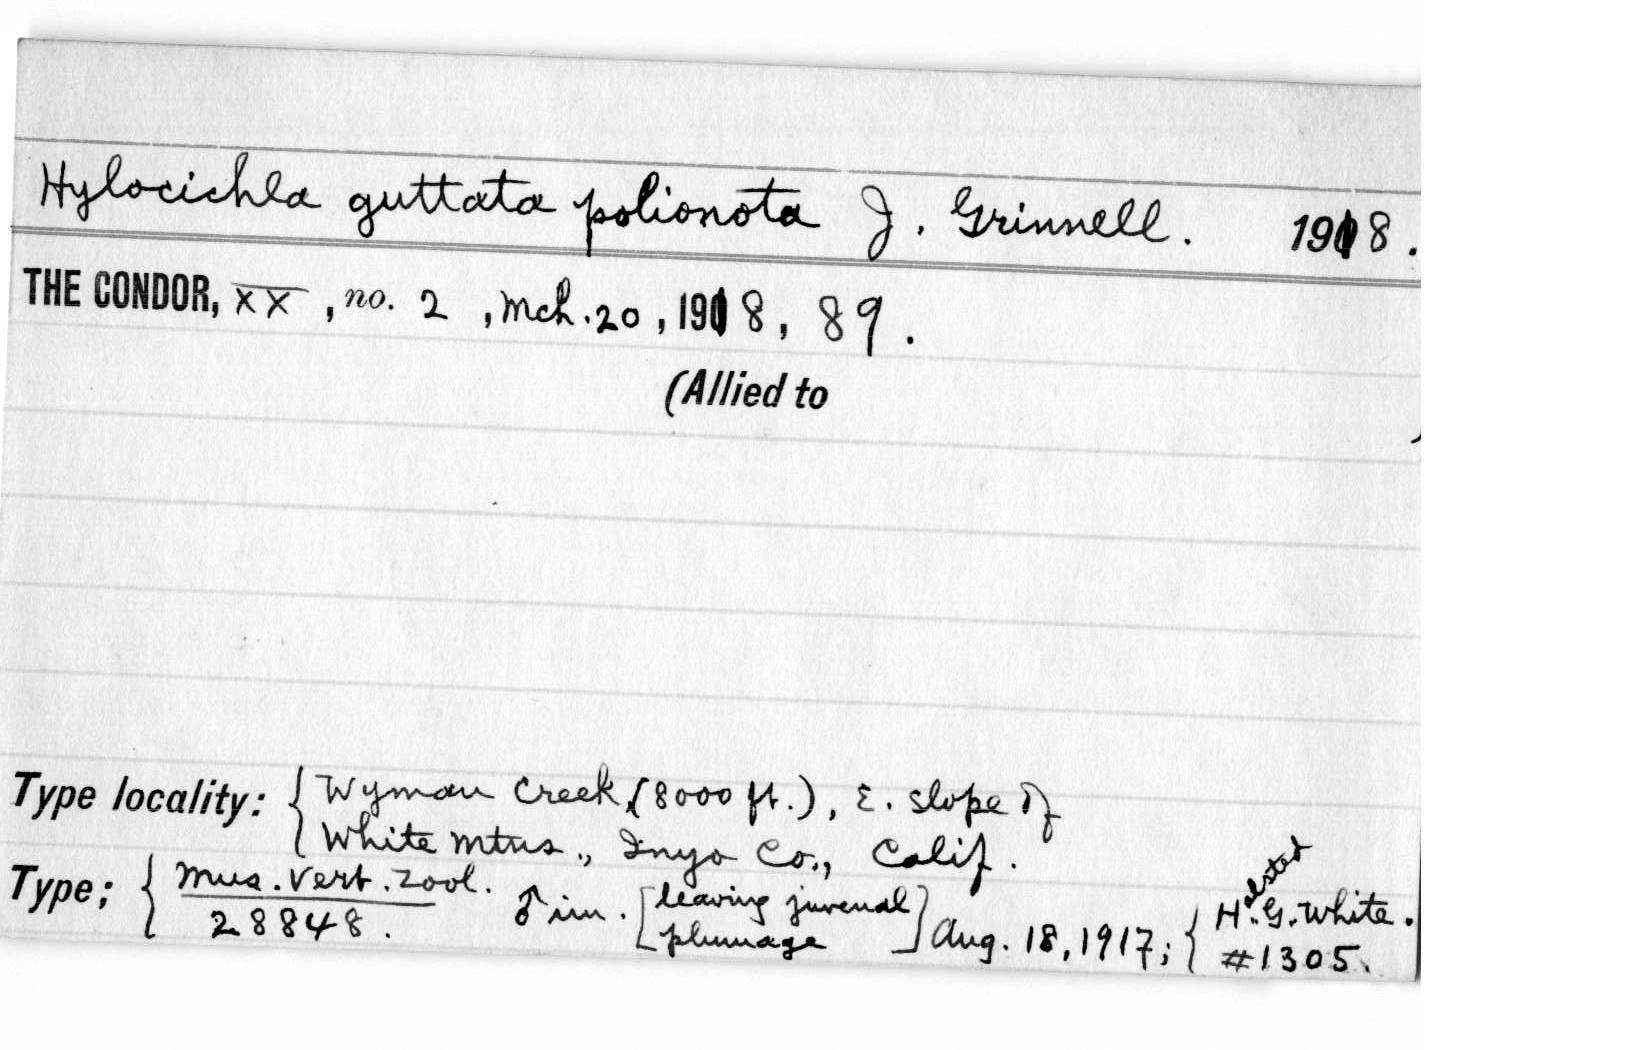 Hylocichla guttata polionota J. Grinnell. 1918.
THE CONDOR, XX, no. 2, Mch. 20, 1918, 89.
(Allied to )
Type locality: { Wyman Creek, (8000 ft.), E. slope of
White Mtns., Inyo Co., Calif.
Type; { Mus. Vert. Zool. ♂ im. [leaving juvenal plumage] Aug. 18, 1917; { Halsted
28848. H. G. White.
#1305.